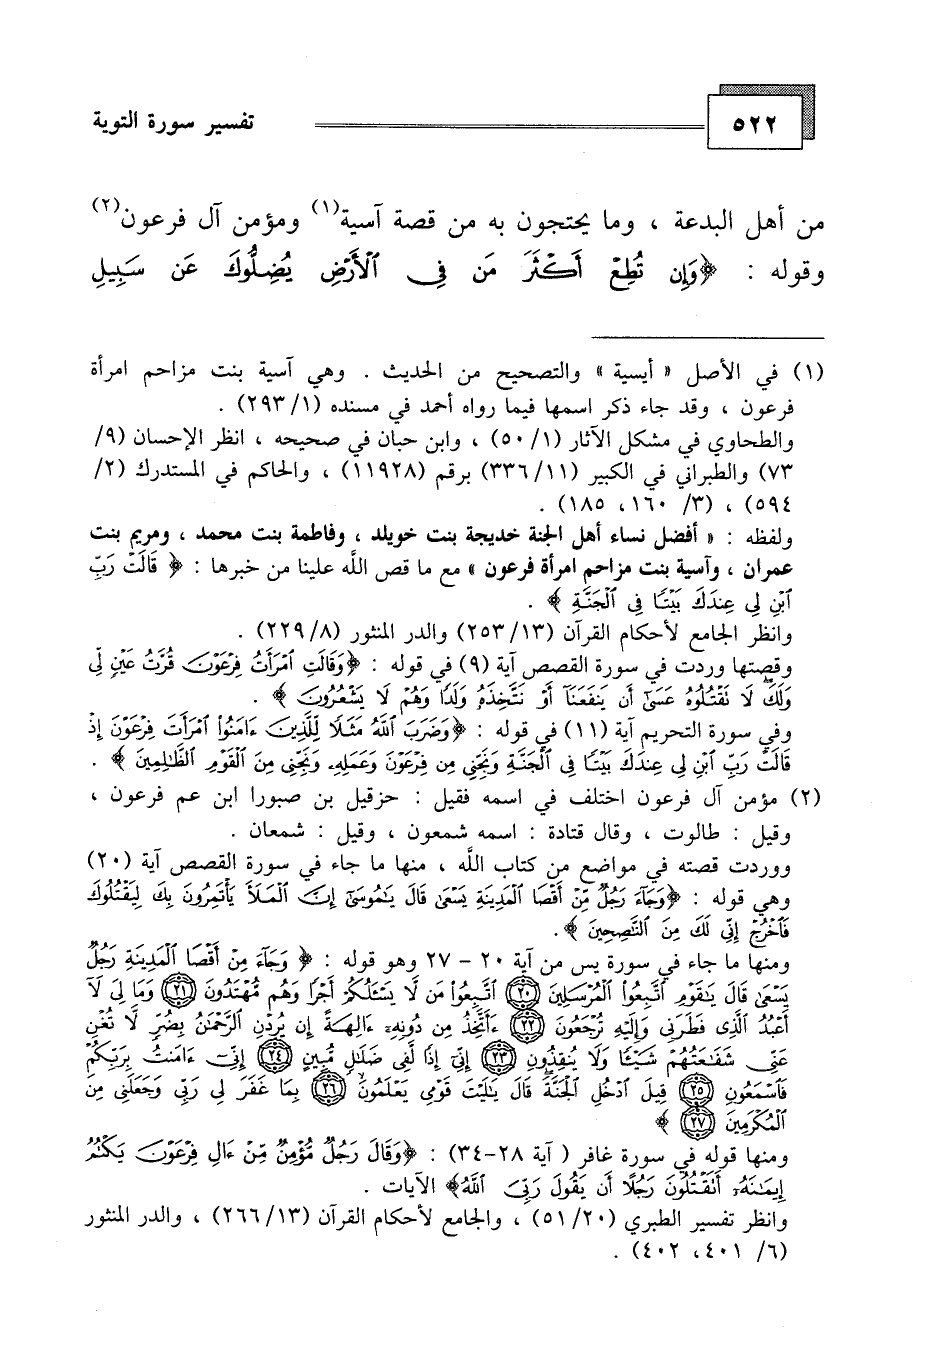 ٥٢٢ تفسير سورة التوبة
من أهل البدعة ، وما يحتجون به من قصة آسية(١) ومؤمن آل فرعون(٢)
وقوله : ﴿وَإِن تُطِعْ أَكْثَرَ مَن فِى ٱلْأَرْضِ يُضِلُّوكَ عَن سَبِيلِ
(١) في الأصل « أيسية » والتصحيح من الحديث . وهي آسية بنت مزاحم امرأة
فرعون ، وقد جاء ذكر اسمها فيما رواه أحمد في مسنده (١/ ٢٩٣) .
والطحاوي في مشكل الآثار (١/ ٥٠) ، وابن حبان في صحيحه ، انظر الإحسان (٩/
٧٣) والطبراني في الكبير (١١/ ٣٣٦) برقم (١١٩٢٨) ، والحاكم في المستدرك (٢/
٥٩٤) ، (٣/ ١٦٠، ١٨٥) .
ولفظه : « أفضل نساء أهل الجنة خديجة بنت خويلد ، وفاطمة بنت محمد ، ومريم بنت
عمران ، وآسية بنت مزاحم امرأة فرعون » مع ما قص الله علينا من خبرها : ﴿ قَالَتْ رَبِّ
ٱبْنِ لِى عِندَكَ بَيْتًا فِى ٱلْجَنَّةِ ﴾ .
وانظر الجامع لأحكام القرآن (١٣/ ٢٥٣) والدر المنثور (٨/ ٢٢٩) .
وقصتها وردت في سورة القصص آية (٩) في قوله : ﴿وَقَالَتِ ٱمْرَأَتُ فِرْعَوْنَ قُرَّتُ عَيْنٍ لِّى
وَلَكَ لَا تَقْتُلُوهُ عَسَىٰٓ أَن يَنفَعَنَآ أَوْ نَتَّخِذَهُۥ وَلَدًا وَهُمْ لَا يَشْعُرُونَ ﴾ .
وفي سورة التحريم آية (١١) في قوله : ﴿وَضَرَبَ ٱللَّهُ مَثَلًا لِّلَّذِينَ ءَامَنُوا۟ ٱمْرَأَتَ فِرْعَوْنَ إِذْ
قَالَتْ رَبِّ ٱبْنِ لِى عِندَكَ بَيْتًا فِى ٱلْجَنَّةِ وَنَجِّنِى مِن فِرْعَوْنَ وَعَمَلِهِۦ وَنَجِّنِى مِنَ ٱلْقَوْمِ ٱلظَّٰلِمِينَ ﴾ .
(٢) مؤمن آل فرعون اختلف في اسمه فقيل : حزقيل بن صبورا ابن عم فرعون ،
وقيل : طالوت ، وقال قتادة : اسمه شمعون ، وقيل : شمعان .
ووردت قصته في مواضع من كتاب الله ، منها ما جاء في سورة القصص آية (٢٠)
وهي قوله : ﴿وَجَآءَ رَجُلٌ مِّنْ أَقْصَا ٱلْمَدِينَةِ يَسْعَىٰ قَالَ يَٰمُوسَىٰٓ إِنَّ ٱلْمَلَأَ يَأْتَمِرُونَ بِكَ لِيَقْتُلُوكَ
فَٱخْرُجْ إِنِّى لَكَ مِنَ ٱلنَّٰصِحِينَ ﴾.
ومنها ما جاء في سورة يس من آية ٢٠ – ٢٧ وهو قوله : ﴿ وَجَآءَ مِنْ أَقْصَا ٱلْمَدِينَةِ رَجُلٌ
يَسْعَىٰ قَالَ يَٰقَوْمِ ٱتَّبِعُوا۟ ٱلْمُرْسَلِينَ ٢٠ ٱتَّبِعُوا۟ مَن لَّا يَسْـَٔلُكُمْ أَجْرًا وَهُم مُّهْتَدُونَ ٢١ وَمَا لِىَ لَآ
أَعْبُدُ ٱلَّذِى فَطَرَنِى وَإِلَيْهِ تُرْجَعُونَ ٢٢ ءَأَتَّخِذُ مِن دُونِهِۦٓ ءَالِهَةً إِن يُرِدْنِ ٱلرَّحْمَٰنُ بِضُرٍّ لَّا تُغْنِ
عَنِّى شَفَٰعَتُهُمْ شَيْـًٔا وَلَا يُنقِذُونِ ٢٣ إِنِّىٓ إِذًا لَّفِى ضَلَٰلٍ مُّبِينٍ ٢٤ إِنِّىٓ ءَامَنتُ بِرَبِّكُمْ
فَٱسْمَعُونِ ٢٥ قِيلَ ٱدْخُلِ ٱلْجَنَّةَ قَالَ يَٰلَيْتَ قَوْمِى يَعْلَمُونَ ٢٦ بِمَا غَفَرَ لِى رَبِّى وَجَعَلَنِى مِنَ
ٱلْمُكْرَمِينَ ٢٧ ﴾
ومنها قوله في سورة غافر ( آية ٢٨-٣٤) : ﴿وَقَالَ رَجُلٌ مُّؤْمِنٌ مِّنْ ءَالِ فِرْعَوْنَ يَكْتُمُ
إِيمَٰنَهُۥٓ أَتَقْتُلُونَ رَجُلًا أَن يَقُولَ رَبِّىَ ٱللَّهُ﴾ الآيات .
وانظر تفسير الطبري (٢٠/ ٥١) ، والجامع لأحكام القرآن (١٣/ ٢٦٦) ، والدر المنثور
(٦/ ٤٠١، ٤٠٢) .